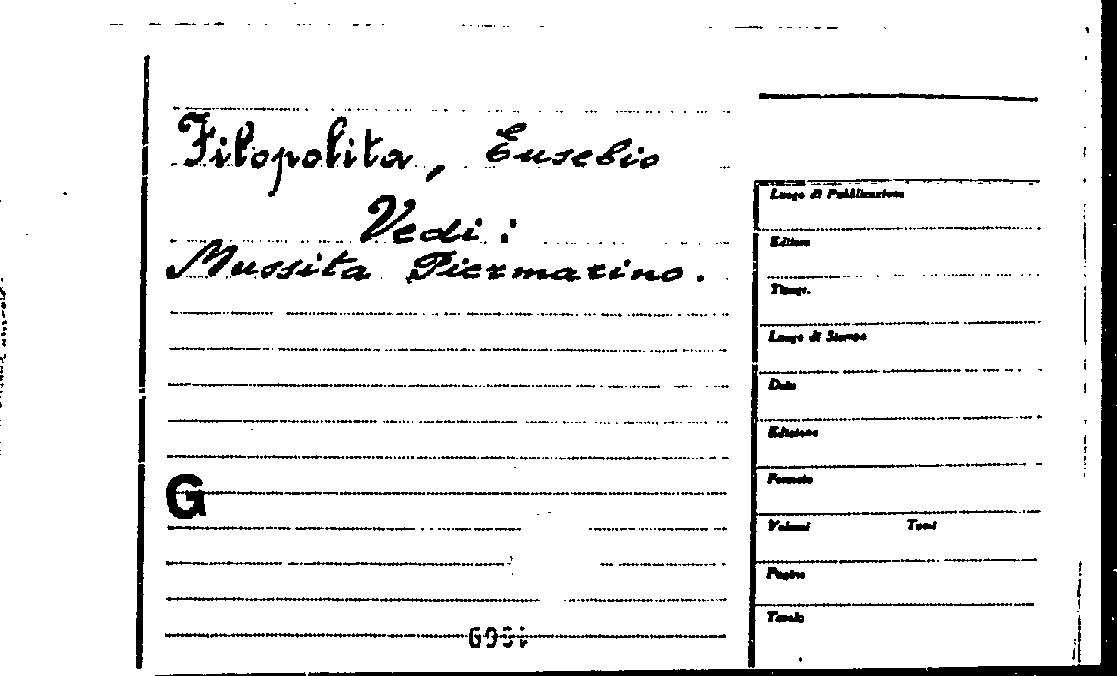 Filopolita, Eusebio
Vedi :
Mussita Piermarino.
G
Luogo di Pubblicazione
Editore
Tipogr.
Luogo di Stampa
Data
Edizione
Formato
Volumi Tomi
Pagine
Tavole